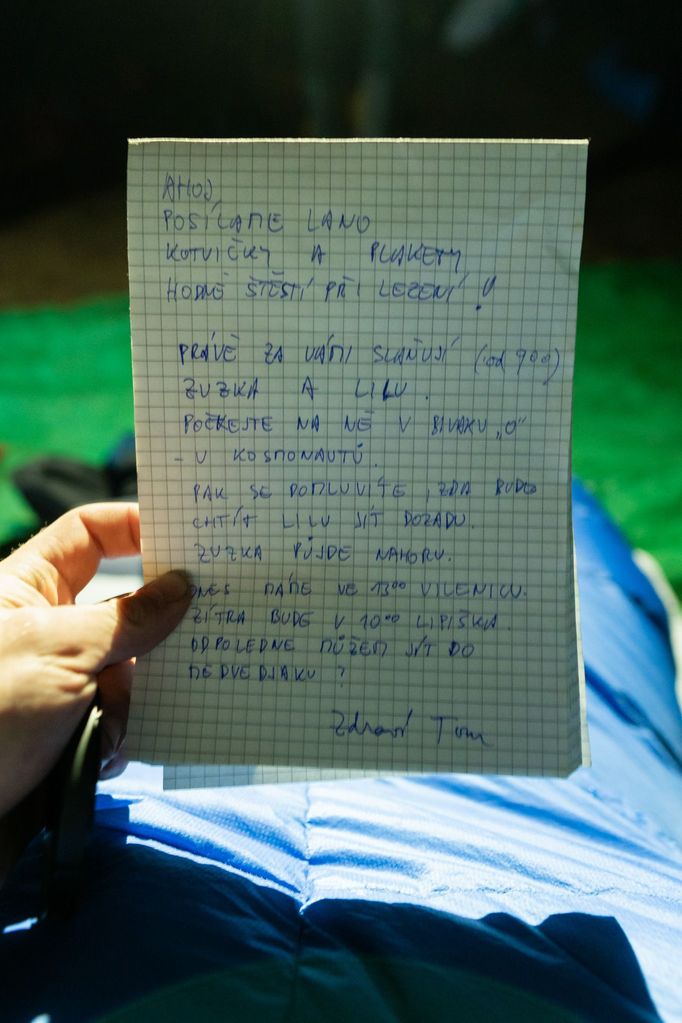 AHOJ,
POSÍLAME LANO
KOTVIČKY A PLAKETY
HODNĚ ŠTĚSTÍ PŘI LEZENÍ !
PRÁVĚ ZA VÁMI SLAŇUJÍ (od 900)
ZUZKA A LILU.
POČKEJTE NA NĚ V BIVAKU „O“
- U KOSMONAUTŮ.
PAK SE DOMLUVÍTE, ZDA BUDE
CHTÍT LILU JÍT DOZADU.
ZUZKA PŮJDE NAHORU.
DNES MÁME VE 13⁰⁰ VILENICU.
ZÍTRA BUDE V 10⁰⁰ LIPIŠKA.
ODPOLEDNE MŮŽEM JÍT DO
MEDVEDJAKU ?
Zdraví Tom